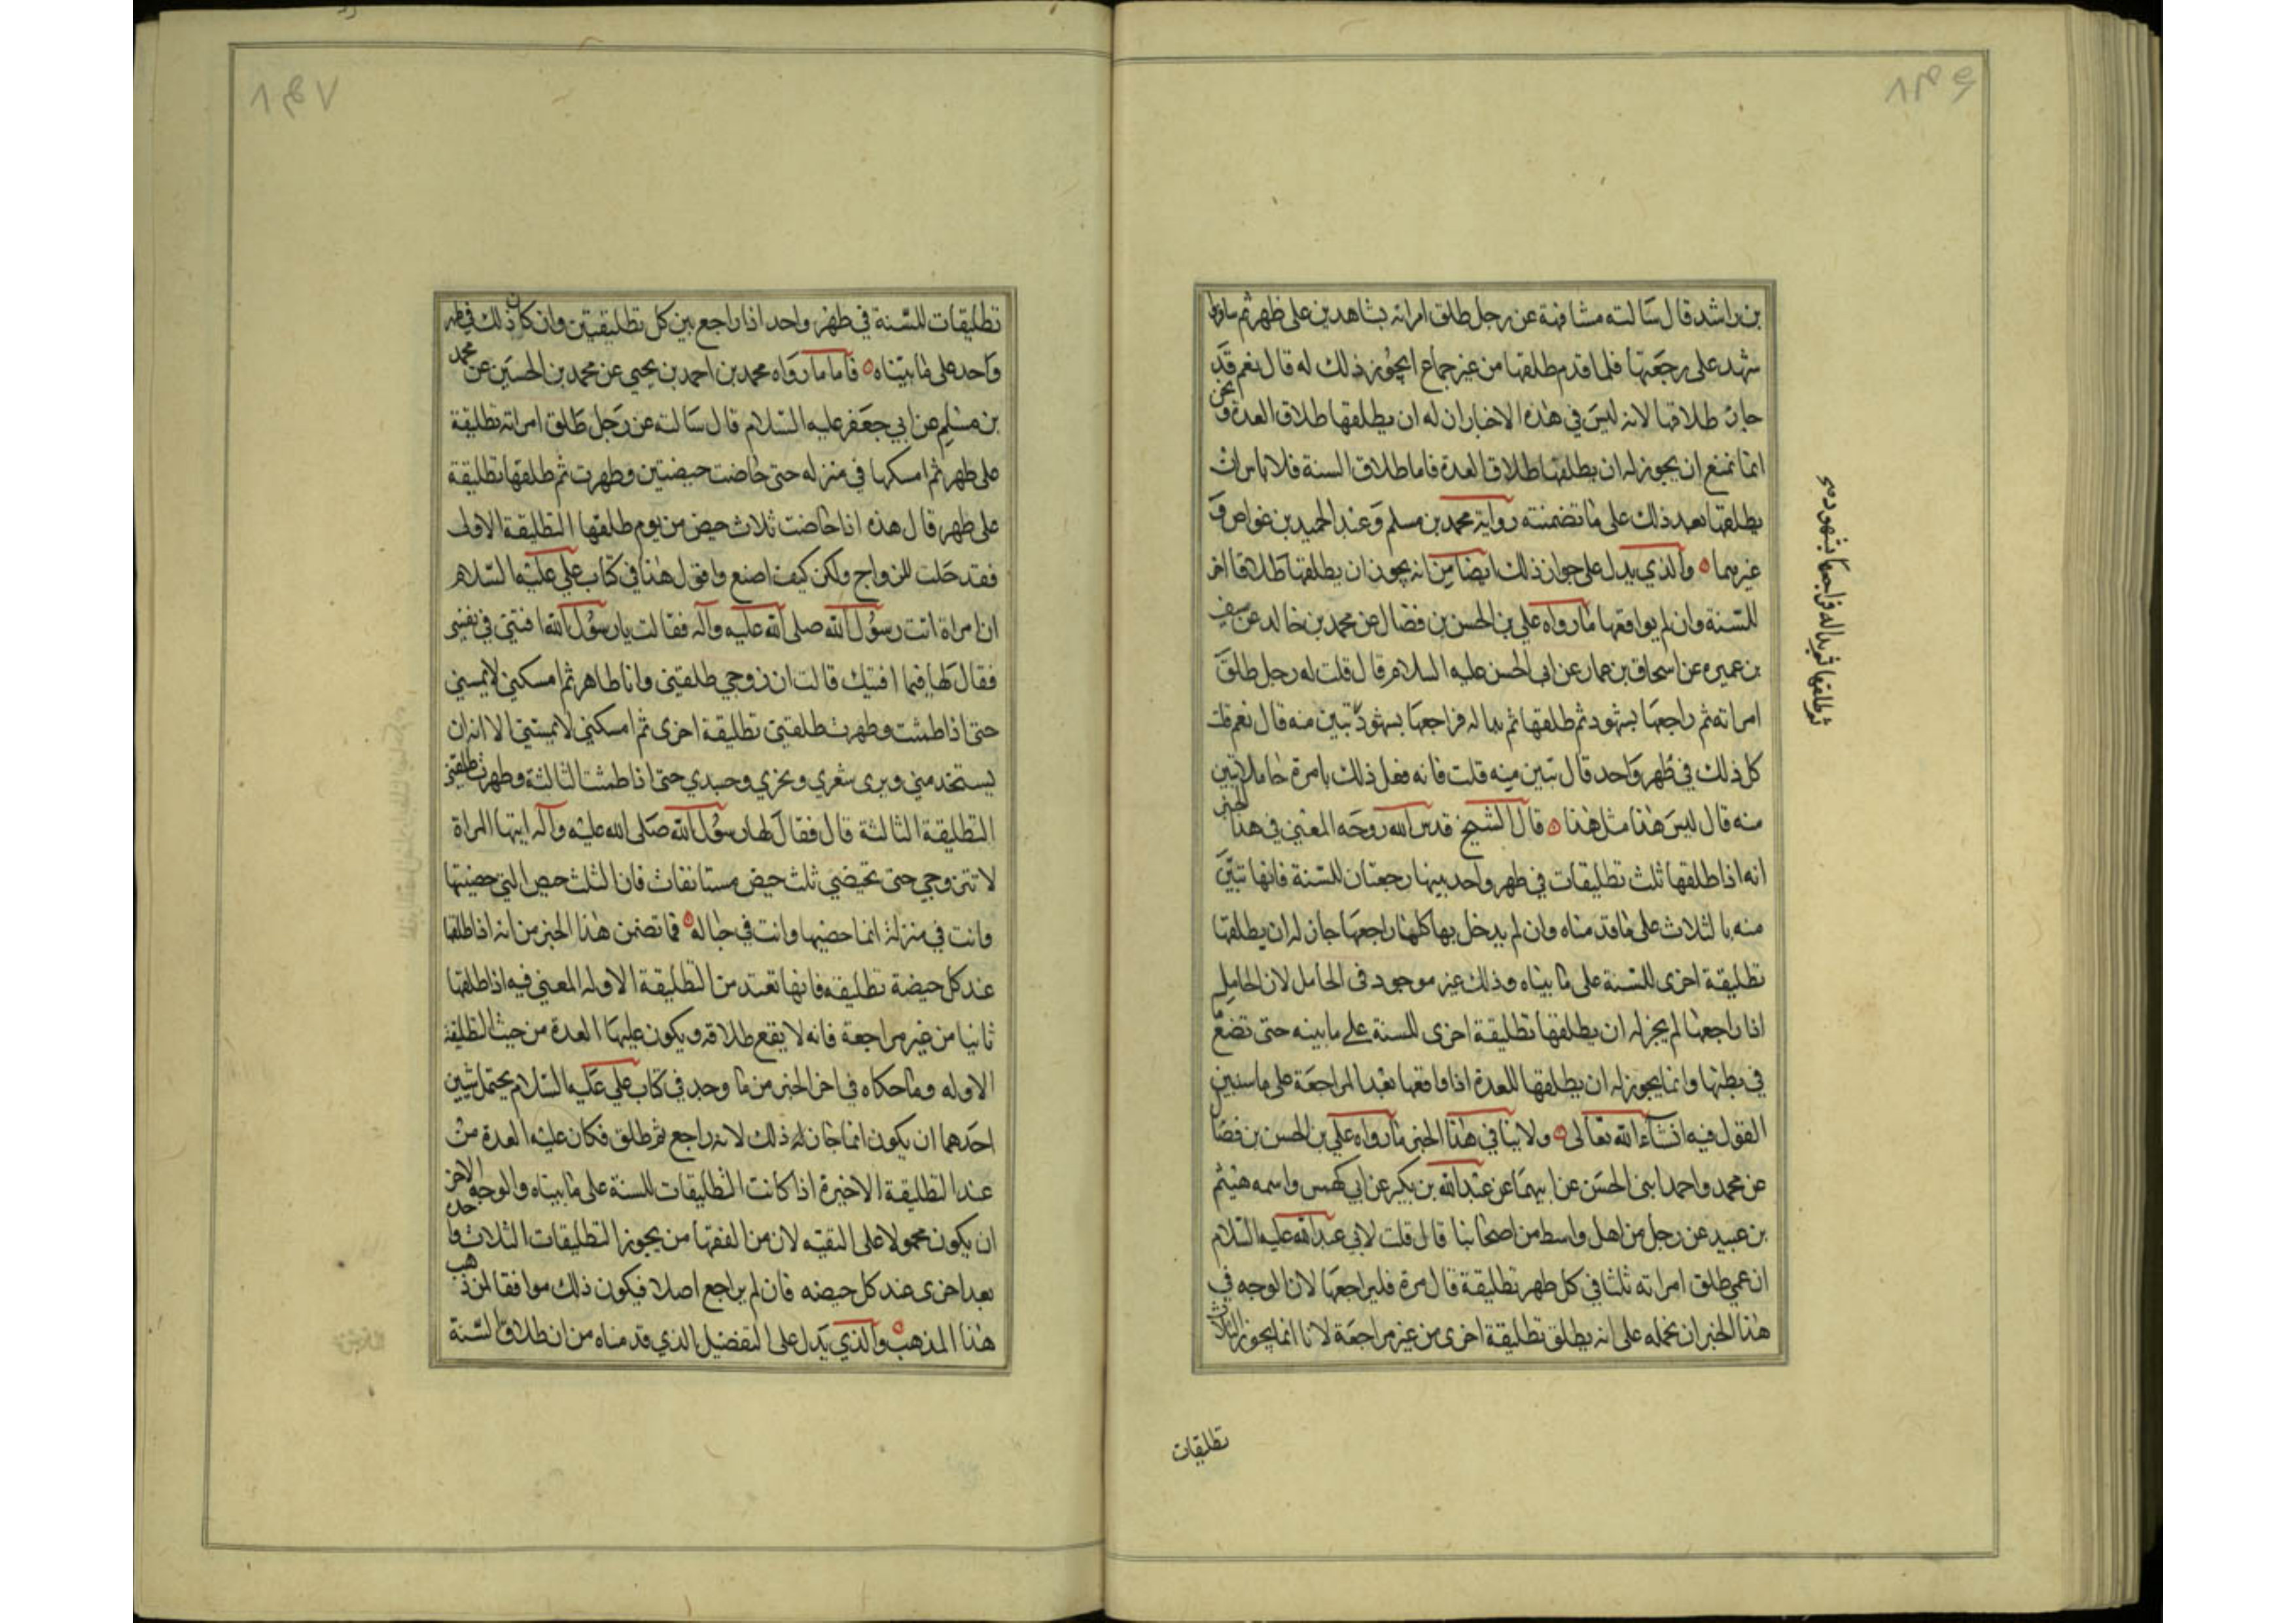 بن راشد قال سالته مشافهة عن رجل طلق امراته بشاهدين على طهر ثم سافر و
شهد على رجعتها فلما قدم طلقها من غير جماع ايجوز ذلك له قال نعم قد
جاز طلاقها لانه ليس في هذه الاخبار ان له ان يطلقها طلاق العدة و نحن
انما نمنع ان يجوز له ان يطلقها طلاق العدة فاما طلاق السنة فلا باس ان
يطلقها بعد ذلك على ما تضمنته رواية محمد بن مسلم وعبد الحميد بن عواض و
غيرهما والذي يدل على جواز ذلك ايضا من انه يجوز ان يطلقها طلاقا اخر
للسنة وان لم يواقعها ما رواه علي بن الحسن بن فضال عن محمد بن خالد عن سيف
بن عميره عن اسحاق بن عمار عن ابي الحسن عليه السلام قال قلت له رجل طلق
امراته ثم راجعها بشهود ثم طلقها ثم بدا له فراجعها بشهود تبين منه قال نعم قلت
كل ذلك في طهر واحد قال تبين منه قلت فانه فعل ذلك بامرة حامل اتبين
منه قال ليس هذا مثل هذا قال الشيخ قدس الله روحه المعني في هذا الخبر
انه اذا طلقها ثلث تطليقات في طهر واحد بينها رجعتان للسنة فانها تبين
منه بالثلاث على ما قدمناه وان لم يدخل بها كلما راجعها جاز له ان يطلقها
تطليقة اخرى للسنة على ما بيناه وذلك غير موجود في الحامل لان الحامل
اذا راجعها لم يجز له ان يطلقها تطليقة اخرى للسنة على ما بينه حتى تضع ما
في بطنها وانما يجوز له ان يطلقها للعدة اذا واقعها بعد المراجعة على ما سنبين
القول فيه انشاء الله تعالى ولا ينافي هذا الخبر ما رواه علي بن الحسن بن فضال
عن محمد واحمد ابني الحسن عن ابيهما عن عبد الله بن بكير عن ابي كهمس واسمه هيثم
بن عبيد عن رجل من اهل واسط من اصحابنا قال قلت لابي عبد الله عليه السلام
ان عمي طلق امراته ثلثا في كل طهر تطليقة قال مره فليراجعها لان الوجه في
هذا الخبر ان نحمله على انه يطلق تطليقة اخرى من غير مراجعة لانا انما يجوز الثلاث
ثم طلقها ثم بدا له فراجعها بشهود صح
تطليقات
تطليقات للسنة في طهر واحد اذا راجع بين كل تطليقتين وان كان ذلك في طهر
واحد على ما بيناه فاما ما رواه محمد بن احمد بن يحيى عن محمد بن الحسين عن محمد
بن مسلم عن ابي جعفر عليه السلام قال سالته عن رجل طلق امراته تطليقة
على طهر ثم امسكها في منزله حتى حاضت حيضتين وطهرت ثم طلقها تطليقة
على طهر قال هذه اذا حاضت ثلاث حيض من يوم طلقها التطليقة الاولى
فقد حلت للزواج ولكن كيف اصنع و اقول هذا في كتاب علي عليه السلام
ان امراة اتت رسول الله صلى الله عليه وآله فقالت يا رسول الله افتني في نفسي
فقال لها فيما افتيك قالت ان زوجي طلقني وانا طاهر ثم امسكني لا يمسني
حتى اذا طمثت وطهرت طلقني تطليقة اخرى ثم امسكني لا يمسني الا انه ان
يستخدمني ويرى شعري ونحري وجسدي حتى اذا طمثت الثالثة وطهرت طلقني
التطليقة الثالثة قال فقال لها رسول الله صلى الله عليه وآله ايتها المراة
لا تتزوجي حتى تحيضي ثلث حيض مستانفات فان الثلث حيض التي حضتها
وانت في منزله انما حضتها وانت في حباله فما تضمن هذا الخبر من انه اذا طلقها
عند كل حيضة تطليقة فانها تعتد من التطليقة الاوله المعني فيه اذا طلقها
ثانيا من غير مراجعة فانه لا يقع طلاقه ويكون عليها العدة من حيث التطليقة
الاوله وما حكاه في اخر الخبر من ما وجد في كتاب علي عليه السلام يحتمل شيين
احدهما ان يكون انما جاز له ذلك لانه راجع ثم طلق فكان عليه العدة من
عند التطليقة الاخيرة اذا كانت التطليقات للسنة على ما بيناه والوجه الاخر
ان يكون محمولا على التقيه لان من الفقها من يجوز التطليقات الثلاث واحدة
بعد اخرى عند كل حيضه فان لم يراجع اصلا فيكون ذلك موافقا لمن ذهب
هذا المذهب والذي يدل على التفضيل الذي قدمناه من ان طلاق السنة